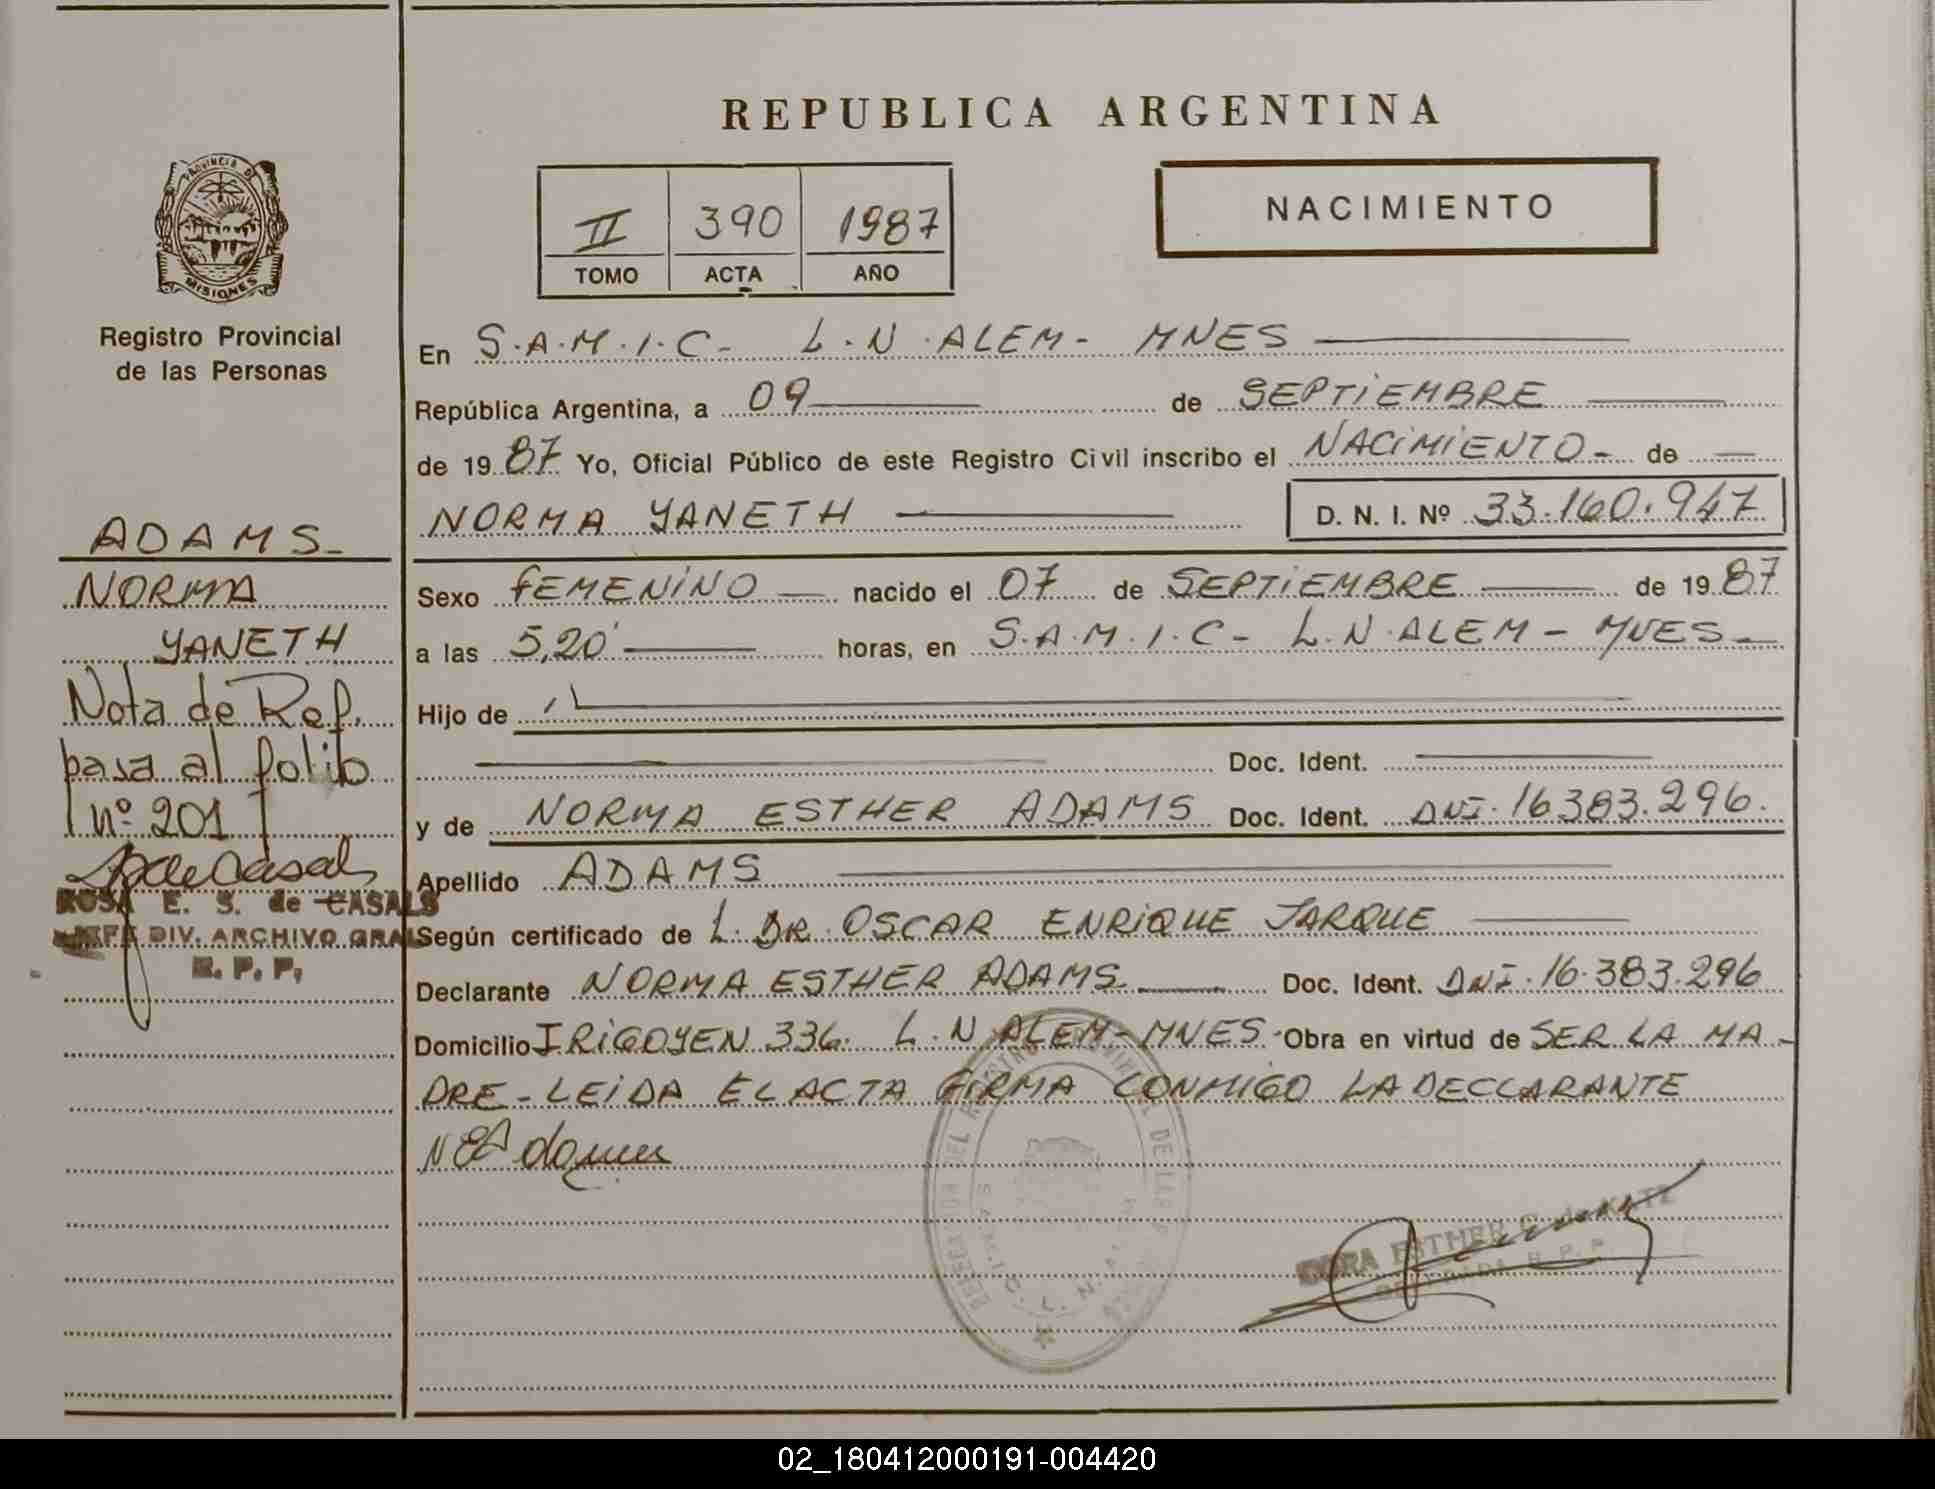 REPUBLICA ARGENTINA
PROVINCIA DE
MISIONES
Registro Provincial
de las Personas
II 390 1987
TOMO ACTA AÑO
NACIMIENTO
En S.A.M.I.C- L.N.ALEM- MNES
República Argentina, a 09 de SEPTIEMBRE
de 1987 Yo, Oficial Público de este Registro Civil inscribo el NACIMIENTO- de
NORMA YANETH D. N. I. Nº 33.160.947
Sexo FEMENINO nacido el 07 de SEPTIEMBRE de 1987
a las 5,20' horas, en S.A.M.I.C- L.N.ALEM- MNES-
Hijo de
Doc. Ident.
y de NORMA ESTHER ADAMS Doc. Ident. DNI.16383.296.
Apellido ADAMS
Según certificado de L. DR. OSCAR ENRIQUE JARQUE
Declarante NORMA ESTHER ADAMS Doc. Ident. DNI.16.383.296
Domicilio IRIGOYEN 336. L.N ALEM-MNES- Obra en virtud de SER LA MA-
DRE-LEIDA EL ACTA FIRMA CONMIGO LA DECLARANTE
NEAdams
ADAMS-
NORMA
YANETH
Nota de Ref.
pasa al folio
nº 201
ROSA E. S. de CASALS
JEFE DIV. ARCHIVO GRAL
R. P. P.
DORA ESTHER C. de KATZ
R. P. P.
02_180412000191-004420